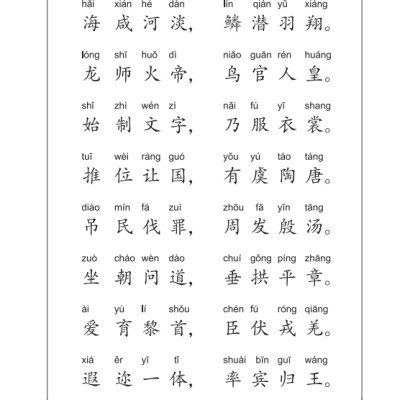 hǎi xián hé dàn lín qián yǔ xiáng
海咸河淡，鳞潜羽翔。
lóng shī huǒ dì niǎo guān rén huáng
龙师火帝，鸟官人皇。
shǐ zhì wén zì nǎi fú yī shang
始制文字，乃服衣裳。
tuī wèi ràng guó yǒu yú táo táng
推位让国，有虞陶唐。
diào mín fá zuì zhōu fā yīn tāng
吊民伐罪，周发殷汤。
zuò cháo wèn dào chuí gǒng píng zhāng
坐朝问道，垂拱平章。
ài yù lí shǒu chén fú róng qiāng
爱育黎首，臣伏戎羌。
xiá ěr yī tǐ shuài bīn guī wáng
遐迩一体，率宾归王。